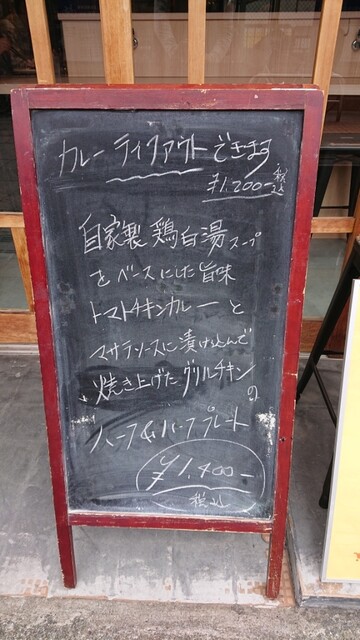 カレー テイクアウト できます
¥1,200- 税込
自家製 鶏白湯スープ
をベースにした旨味
トマトチキンカレーと
マサラソースに漬け込んで
焼き上げたグリルチキンの
ハーフ&ハーフプレート
¥1,400-
税込